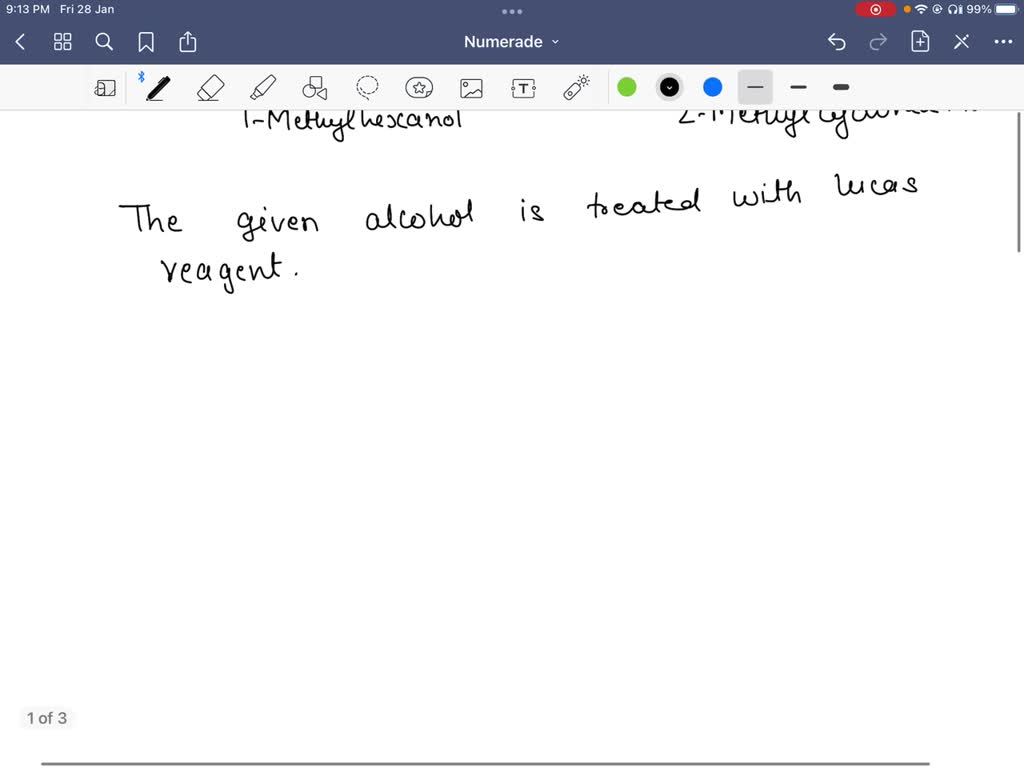 9:13 PM Fri 28 Jan
99%
Numerade
T
1-Methylhexcanol
The given alcohol is treated with lucas
reagent.
1 of 3